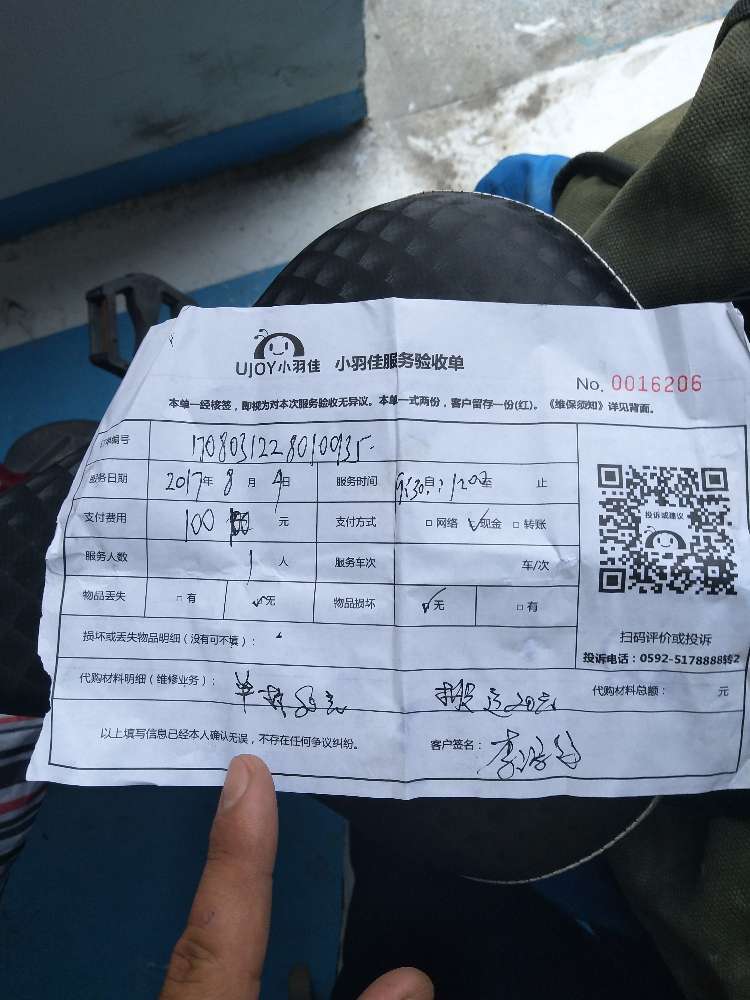 UJOY小羽佳 小羽佳服务验收单
No. 0016206
本单一经核签，即视为对本次服务验收无异议。本单一式两份，客户留存一份(红)。《维保须知》详见背面。
订单编号 1708031228010935
服务日期 2017年 8月 4日 服务时间 9:30 自 : 1200 至 止
支付费用 100 元 支付方式 □ 网络 ☑ 现金 □ 转账
服务人数 1 人 服务车次 车/次
物品丢失 □ 有 ☑ 无 物品损坏 ☑ 无 □ 有
投诉或建议
扫码评价或投诉
投诉电话：0592-5178888转2
损坏或丢失物品明细（没有可不填）：
代购材料明细（维修业务）： 80元 搬运20元 代购材料总额： 元
以上填写信息已经本人确认无误，不存在任何争议纠纷。 客户签名： 李